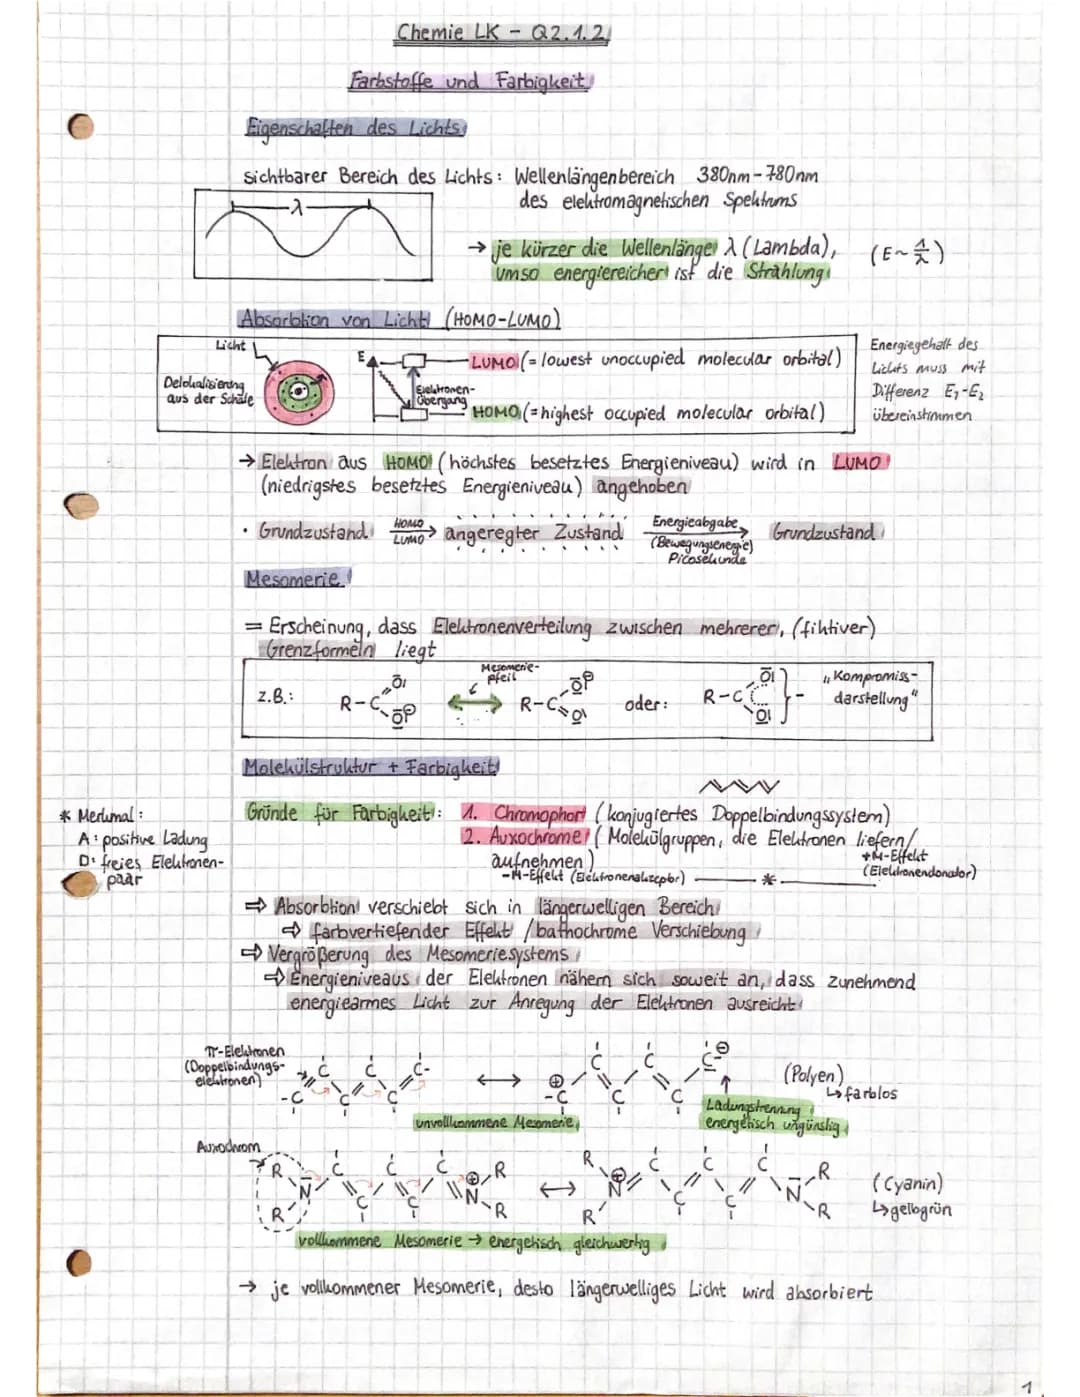 Chemie LK - Q2.1.2
Farbstoffe und Farbigkeit
Eigenschaften des Lichts
sichtbarer Bereich des Lichts: Wellenlängenbereich 380nm-780nm
des elektromagnetischen Spektrums
λ
→ je kürzer die Wellenlänge λ (Lambda), (E~1/λ)
umso energiereicher ist die Strahlung
Absorbtion von Licht (HOMO-LUMO)
Licht
Delokalisierung
aus der Schale
E
Elektronen-
übergang
LUMO (= lowest unoccupied molecular orbital)
HOMO (= highest occupied molecular orbital)
Energiegehalt des
Lichts muss mit
Differenz E₁-E₂
übereinstimmen
→ Elektron aus HOMO (höchstes besetztes Energieniveau) wird in LUMO
(niedrigstes besetztes Energieniveau) angehoben
• Grundzustand HOMO LUMO → angeregter Zustand Energieabgabe (Bewegungsenergie) Picosekunde → Grundzustand
Mesomerie
= Erscheinung, dass Elektronenverteilung zwischen mehrerer, (fiktiver)
Grenzformeln liegt
z.B.:
Mesomerie-
pfeil
R-C
R-C
oder:
R-C
"Kompromiss-
darstellung"
Molekülstruktur + Farbigkeit
Gründe für Farbigkeit: 1. Chromophor (konjugiertes Doppelbindungssystem)
2. Auxochrome (Molekülgruppen, die Elektronen liefern/
aufnehmen)
+M-Effekt
(Elektronendonator)
-M-Effekt (Elektronenakzeptor) *
* Merkmal:
A: positive Ladung
D: freies Elektronen-
paar
⇒ Absorbtion verschiebt sich in längerwelligen Bereich
⇒ farbvertiefender Effekt / bathochrome Verschiebung
⇒ Vergrößerung des Mesomeriesystems
⇒ Energieniveaus der Elektronen nähern sich soweit an, dass zunehmend
energiearmes Licht zur Anregung der Elektronen ausreicht
π-Elektronen
(Doppelbindungs-
elektronen)
C C C-
-C C C
↔
C C C⊖
⊕ -C C C
(Polyen)
↳ farblos
unvollkommene Mesomerie
Ladungstrennung
energetisch ungünstig
Auxochrom
R C C C ⊕ R
N C C N
R R
↔
R ⊕ C C C R
N C C N
R R
(Cyanin)
↳ gelbgrün
vollkommene Mesomerie → energetisch gleichwertig
→ je vollkommener Mesomerie, desto längerwelliges Licht wird absorbiert
1